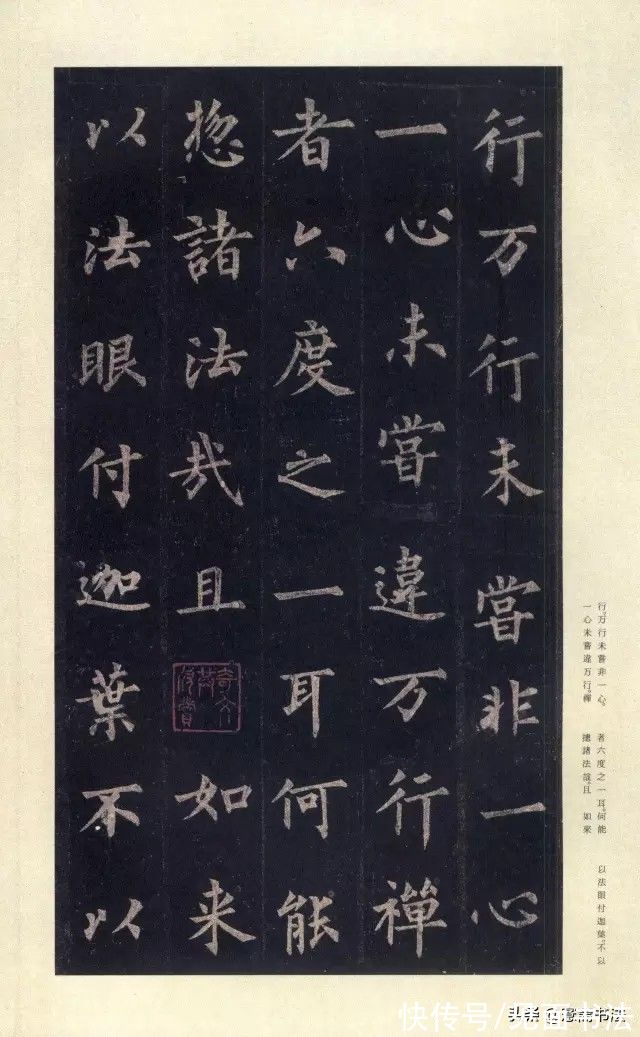 行万行未嘗非一心
一心未嘗違万行禪
者六度之一耳何能
揔諸法哉且如来
以法眼付迦葉不以
行。万行未嘗非一心。
一心未嘗違万行。禪
者六度之一耳。何能
摠諸法哉。且 如來
以法眼付迦葉。不以
快传号/见面书法